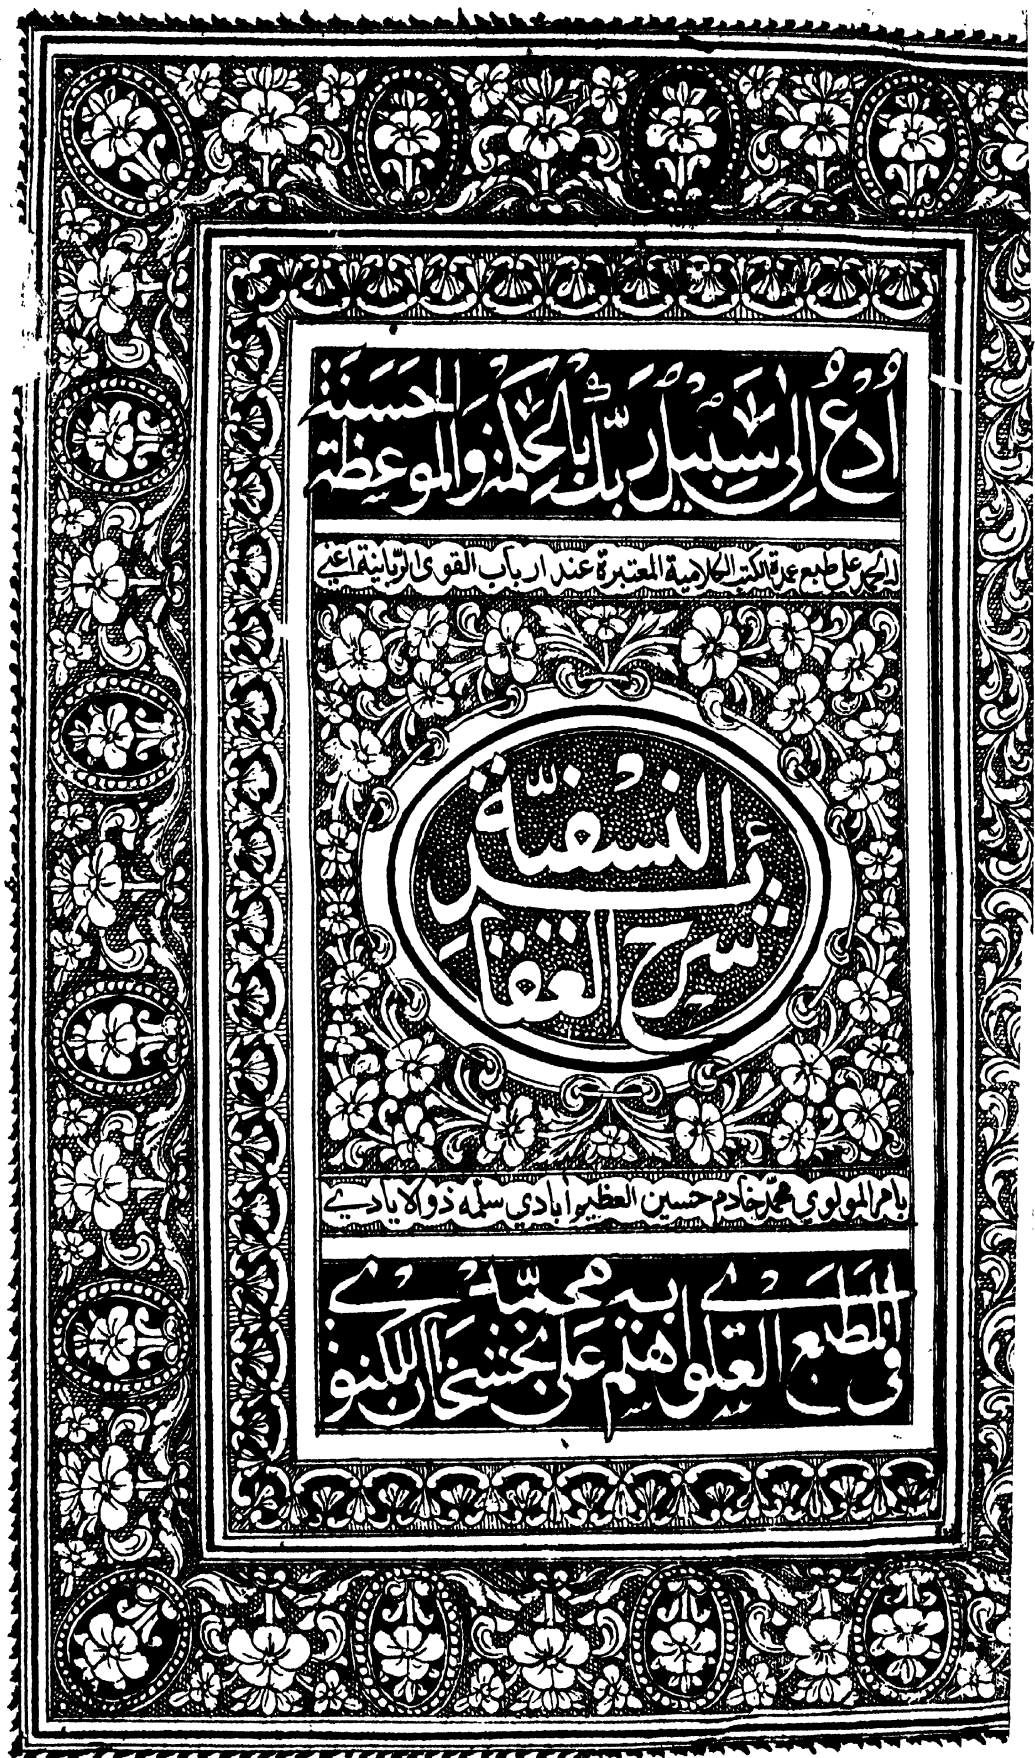 اُدْعُ اِلٰی سَبِیْلِ رَبِّكَ بِالْحِكْمَةِ وَالْمَوْعِظَةِ الْحَسَنَةِ
له الحمد علی طبع عمدة الکتب الکلامیة المعتبرة عند ارباب القوی الربّانیة اعنی
شرح العقائد
النسفیّة
بامر المولوي محمّد خادم حسین العظیم آبادي سلّمه ذو الایادي
فی المطبع العلوی
علی بخشخان اللکنوي